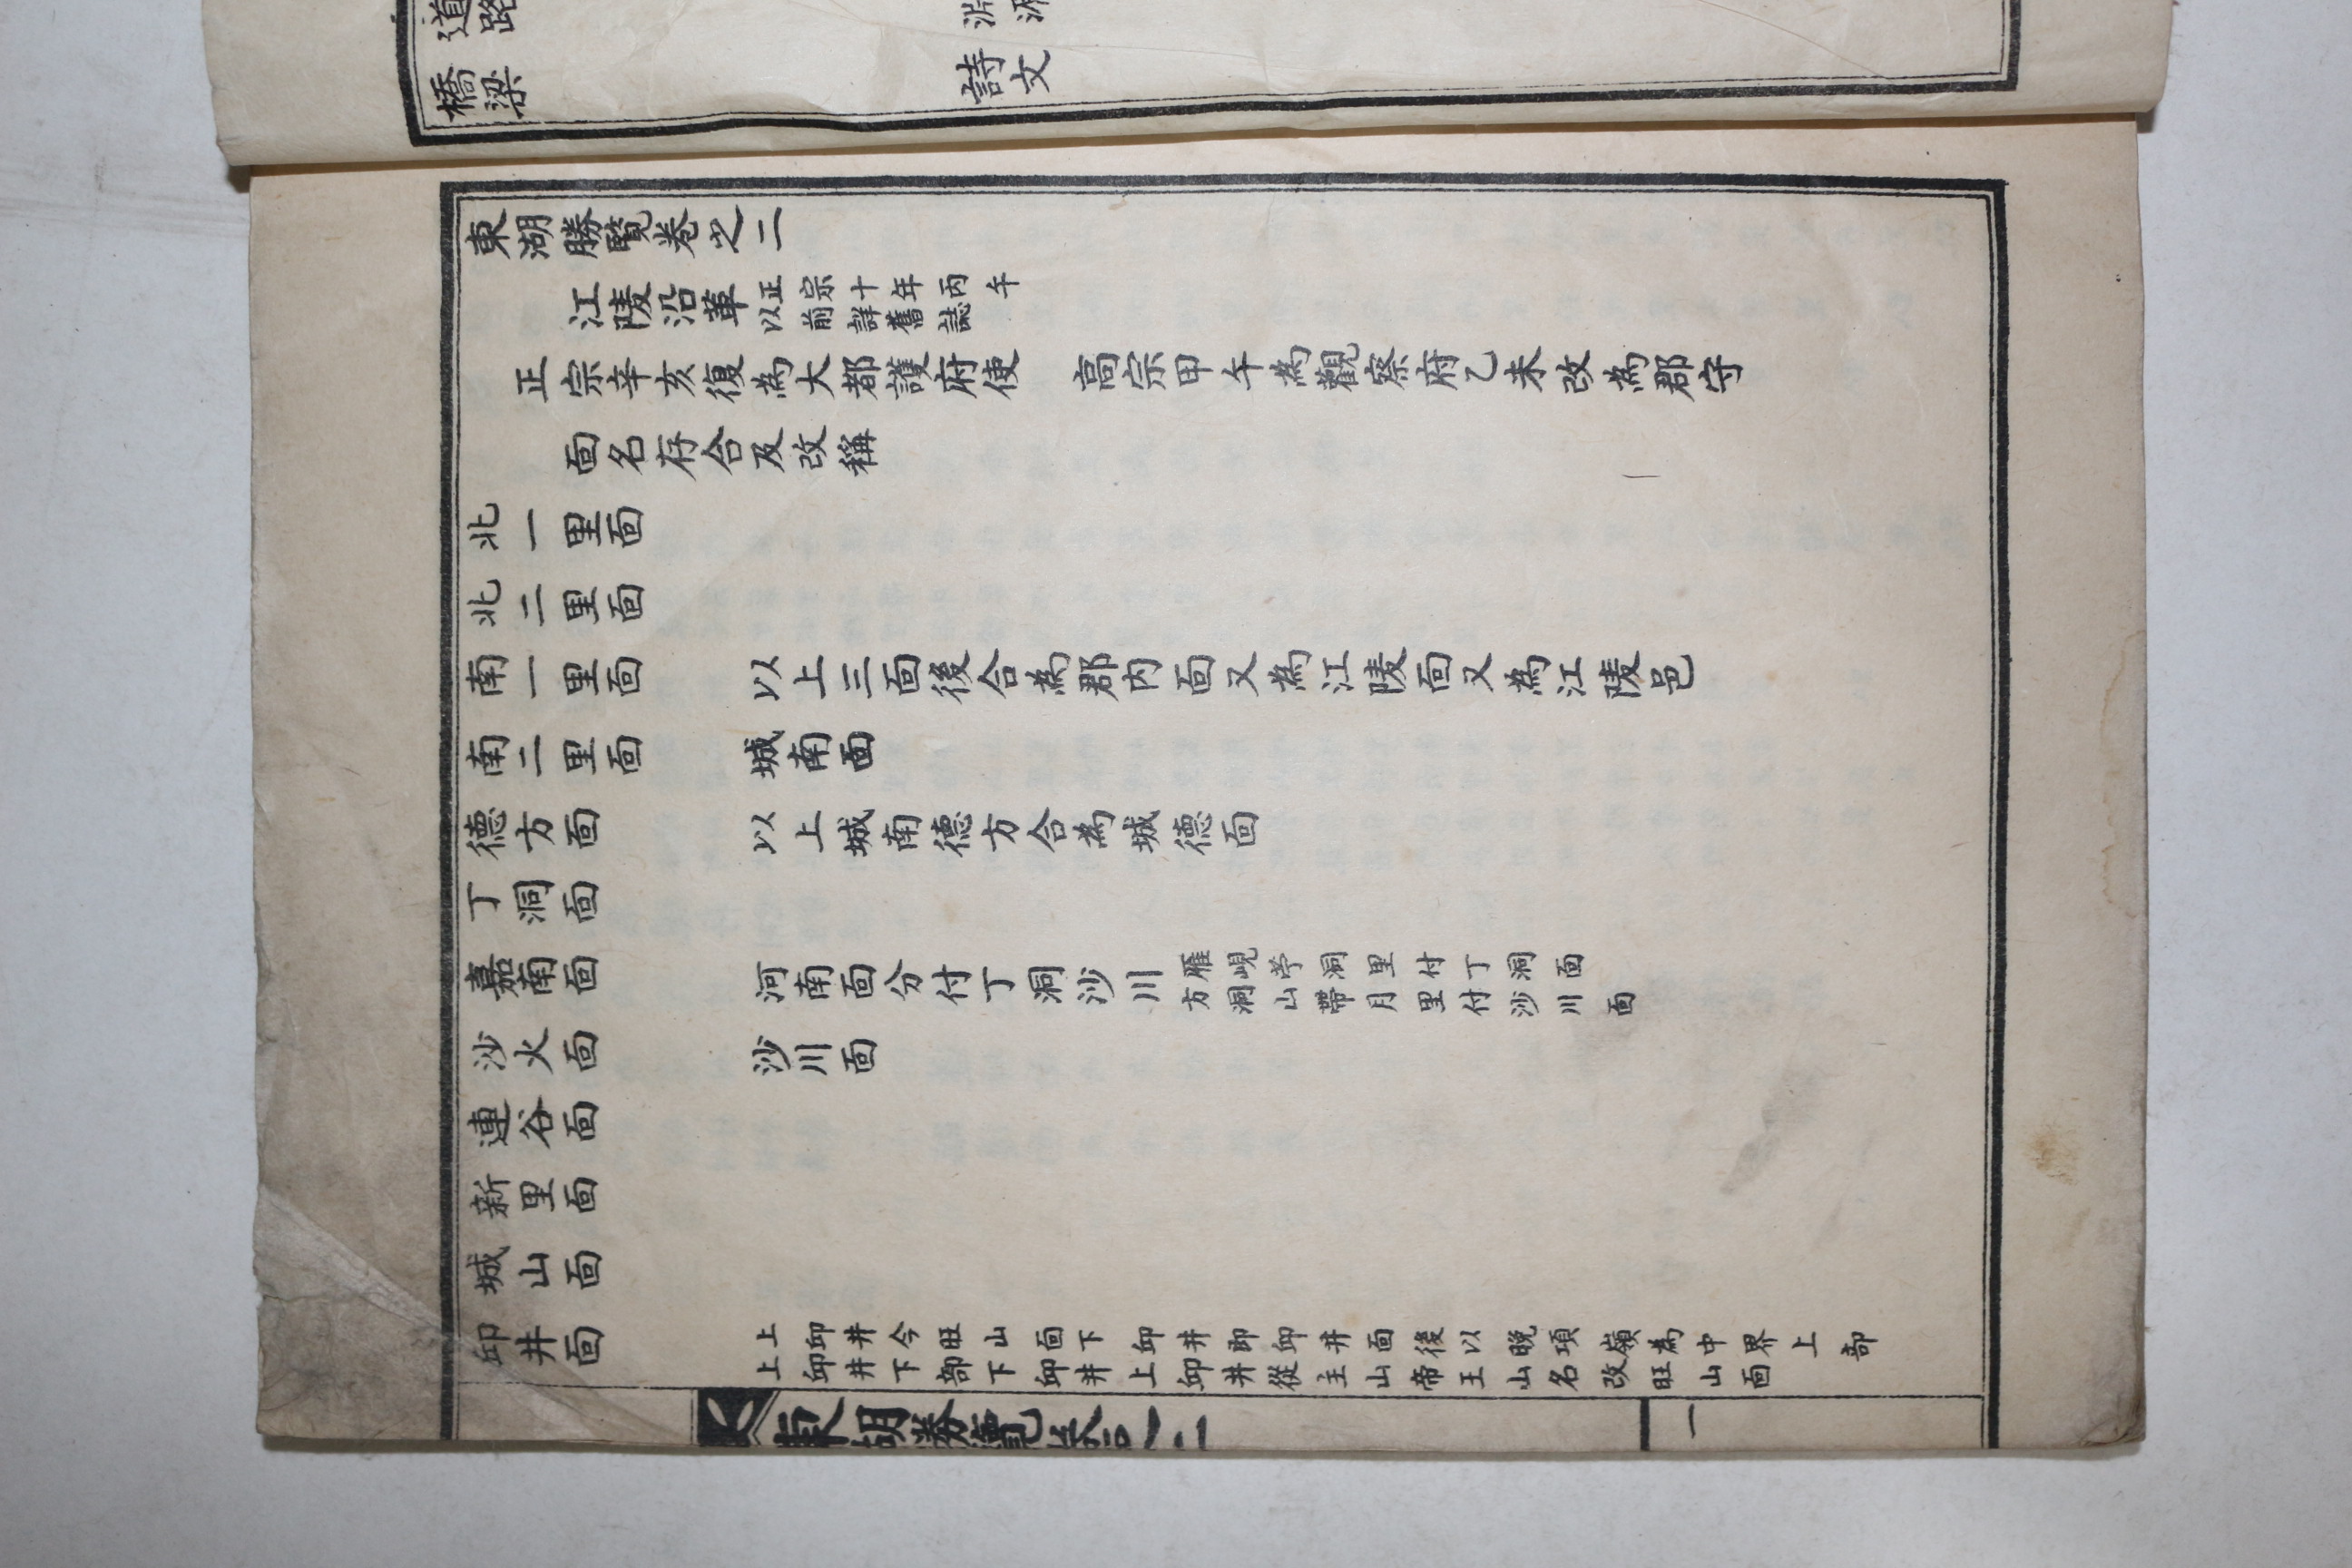 道路
淵源
橋梁
詩文
東湖勝覧卷之二
江陵沿革 正宗十年丙午
以前詳舊誌
正宗辛亥復為大都護府使 高宗甲午為觀察府乙未改為郡守
面名存合及改稱
北一里面
北二里面
南一里面 以上三面後合為郡内面又為江陵面又為江陵邑
南二里面 城南面
德方面 以上城南德方合為城德面
丁洞面
嘉南面 河南面分付丁洞沙川 雁峴苧洞里付丁洞面
方洞山帶月里付沙川面
沙火面 沙川面
連谷面
新里面
城山面
邱井面 上邱井今旺山面下邱井即邱井面後以晩項嶺為中界上部
上邱井下部下邱井上邱井從主山帝王山名改旺山面
東湖勝覽卷之二
一